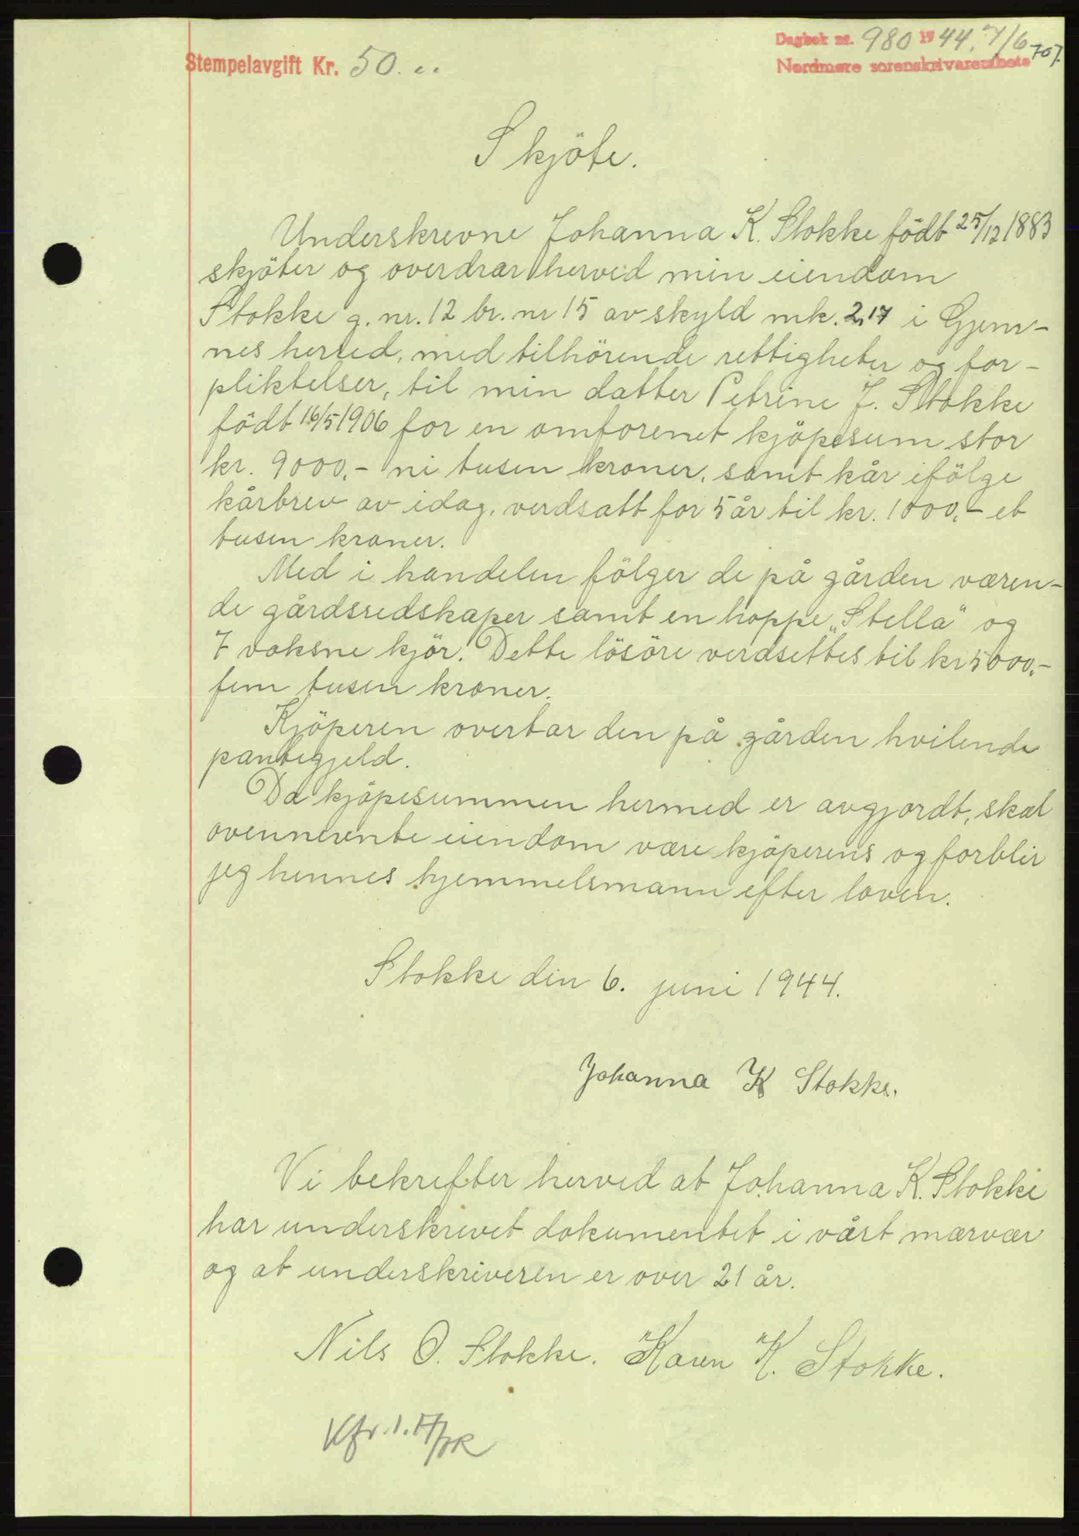 Stempelavgift Kr. 50.
Dagbok nr. 980 1944, 7/6
Nordmøre sorenskrivarembete
707.
Skjöte.
Underskrevne Johanna K. Stokke födt 25/12 1883
skjöter og overdrar herved min eiendom
Stokke g. nr. 12 br. nr 15 av skyld mk. 2,17 i Gjem-
nes herred, med tilhörende rettigheter og for-
pliktelser, til min datter Petrine J. Stokke
födt 16/5 1906 for en omforenet kjöpesum stor
kr. 9000,- ni tusen kroner, samt kår ifölge
kårbrev av idag, verdsatt for 5 år til kr. 1000,- et
tusen kroner.
Med i handelen fölger de på gården væren-
de gårdsredskaper samt en hoppe „Stella" og
7 voksne kjör. Dette lösöre verdsettes til kr 5000,-
fem tusen kroner.
Kjöperen overtar den på gården hvilende
pantegjeld.
Da kjöpesummen hermed er avgjordt, skal
ovennevnte eiendom være kjöperens og forblir
jeg hennes hjemmelsmann efter loven.
Stokke den 6. juni 1944.
Johanna K Stokke.
Vi bekrefter herved at Johanna K. Stokke
har underskrevet dokumentet i vårt nærvær
og at underskriveren er over 21 år.
Nils O. Stokke. Karen K. Stokke.